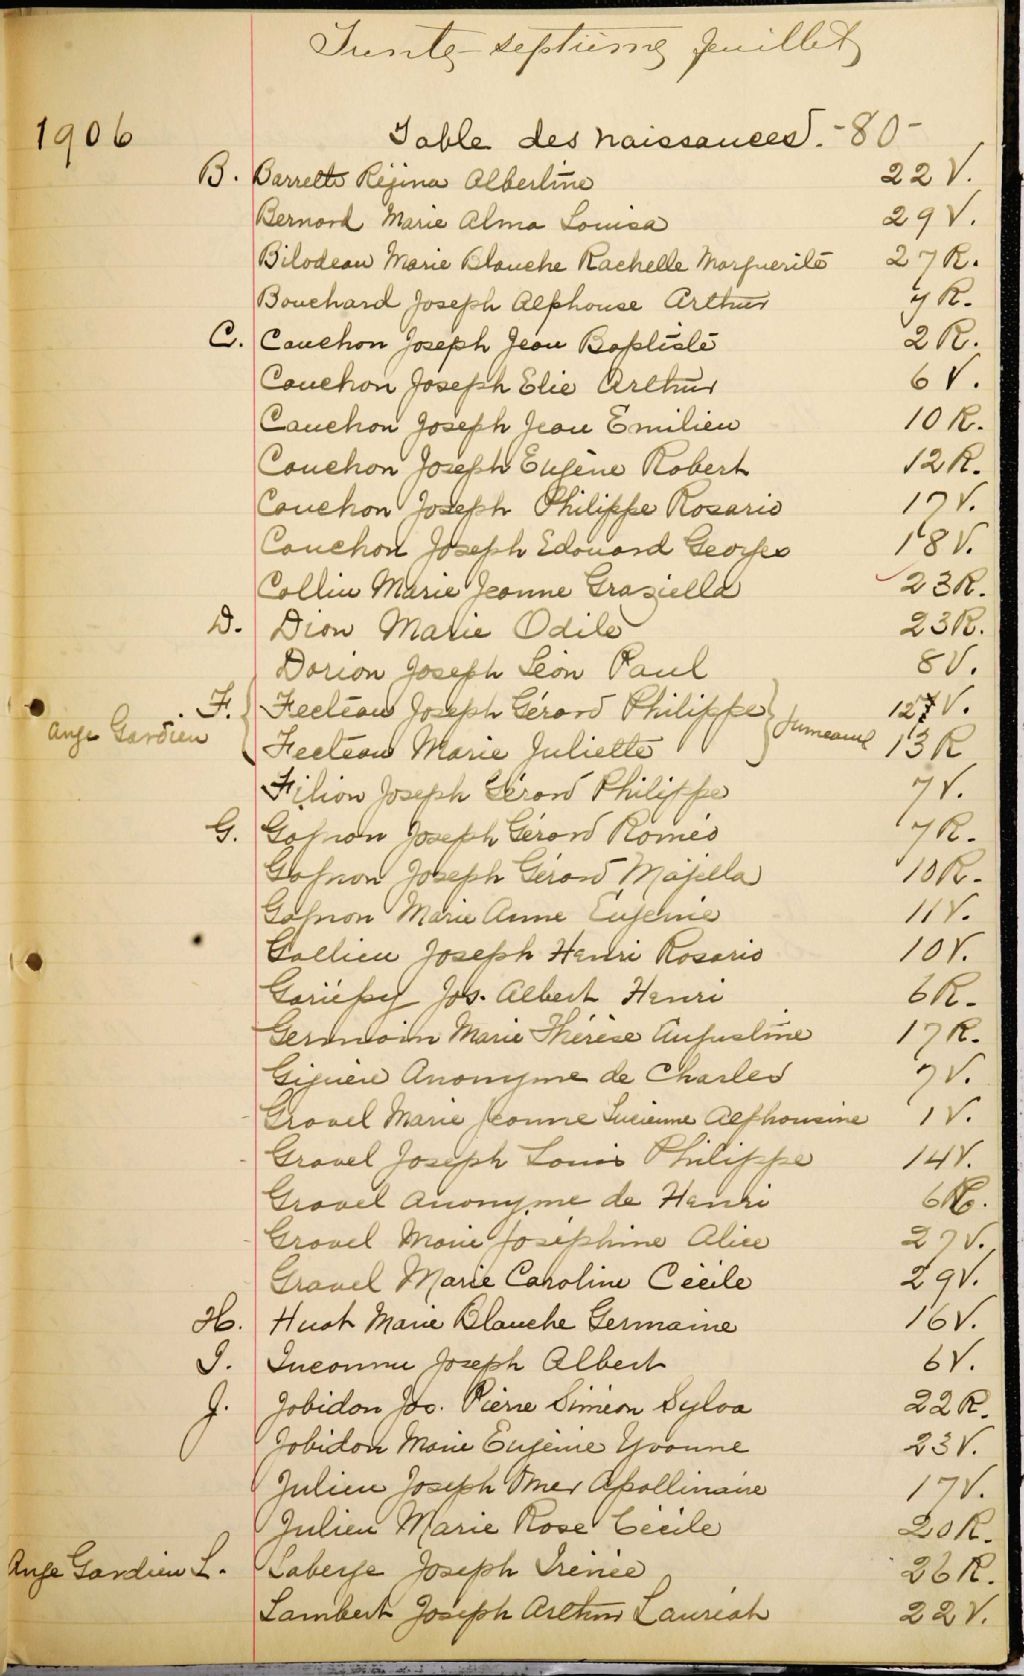 Trente-septième feuillet
1906 Table des naissances. -80-
B. Barrette Réjina Albertine 22 V.
Bernard Marie Alma Louisa 29 V.
Bilodeau Marie Blanche Rachelle Marguerite 27 R.
Bouchard Joseph Alphonse Arthur 7 R.
C. Cauchon Joseph Jean Baptiste 2 R.
Cauchon Joseph Elie Arthur 6 V.
Cauchon Joseph Jean Emilien 10 R.
Cauchon Joseph Eugène Robert 12 R.
Cauchon Joseph Philippe Rosario 17 V.
Cauchon Joseph Edouard Georges 18 V.
Collin Marie Jeanne Graziella 23 R.
D. Dion Marie Odile 23 R.
Dorion Joseph Léon Paul 8 V.
F. Fecteau Joseph Gérard Philippe 12 V.
Ange Gardien Fecteau Marie Juliette Jumeaux 13 R
Filion Joseph Gérard Philippe 7 V.
G. Gagnon Joseph Gérard Roméo 7 R.
Gagnon Joseph Gérard Majella 10 R.
Gagnon Marie Anne Eugénie 11 V.
Gallien Joseph Henri Rosario 10 V.
Gariépy Jos. Albert Henri 6 R.
Germain Marie Thérèse Augustine 17 R.
Giguère Anonyme de Charles 7 V.
Gravel Marie Jeanne Lucienne Alphonsine 1 V.
Gravel Joseph Louis Philippe 14 V.
Gravel Anonyme de Henri 6 R.
Gravel Marie Joséphine Alice 27 V.
Gravel Marie Caroline Cécile 29 V.
H. Huot Marie Blanche Germaine 16 V.
I. Inconnu Joseph Albert 6 V.
J. Jobidon Jos. Pierre Siméon Sylva 22 R.
Jobidon Marie Eugénie Yvonne 23 V.
Julien Joseph Omer Apollinaire 17 V.
Julien Marie Rose Cécile 20 R.
Ange Gardien L. Laberge Joseph Irénée 26 R.
Lambert Joseph Arthur Lauréat 22 V.